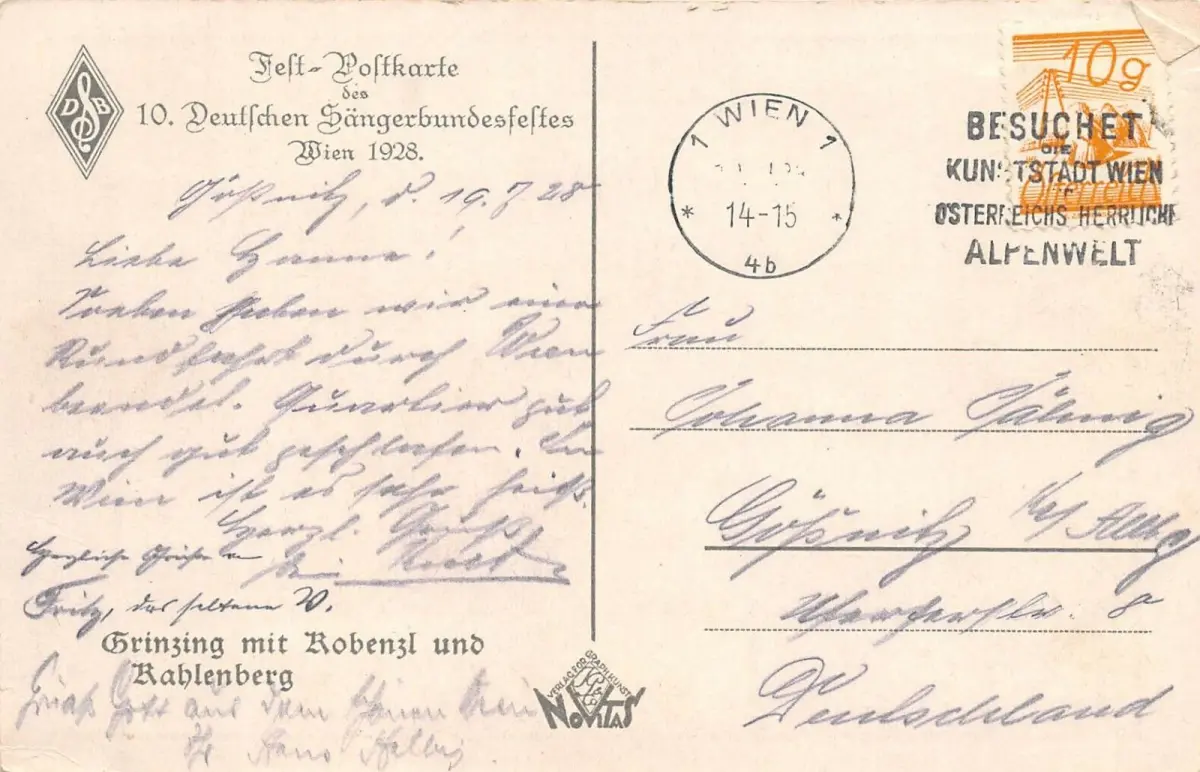 Fest-Postkarte
des
10. Deutschen Sängerbundesfestes
Wien 1928.
D B
Gößnitz, d. 19.7.28
Liebe Hanna!
Soeben haben wir eine
Rundfahrt durch Wien
beendet. Quartier gut
auch gut geschlafen. In
Wien ist es sehr heiß.
Herzl. Gruß
Herzliche Grüße
Fritz, das seltene V.
Grinzing mit Kobenzl und
Kahlenberg
Grüß Gott aus dem schönen Wien
Hans
1 WIEN 1
14-15
* *
4b
10g
Österreich
BESUCHET
DIE
KUNSTSTADT WIEN
ÖSTERREICHS HERRLICHE
ALPENWELT
Frau
Johanna
Gößnitz
Deutschland
VERLAG FÜR GRAPH. KUNST
NOVITAS